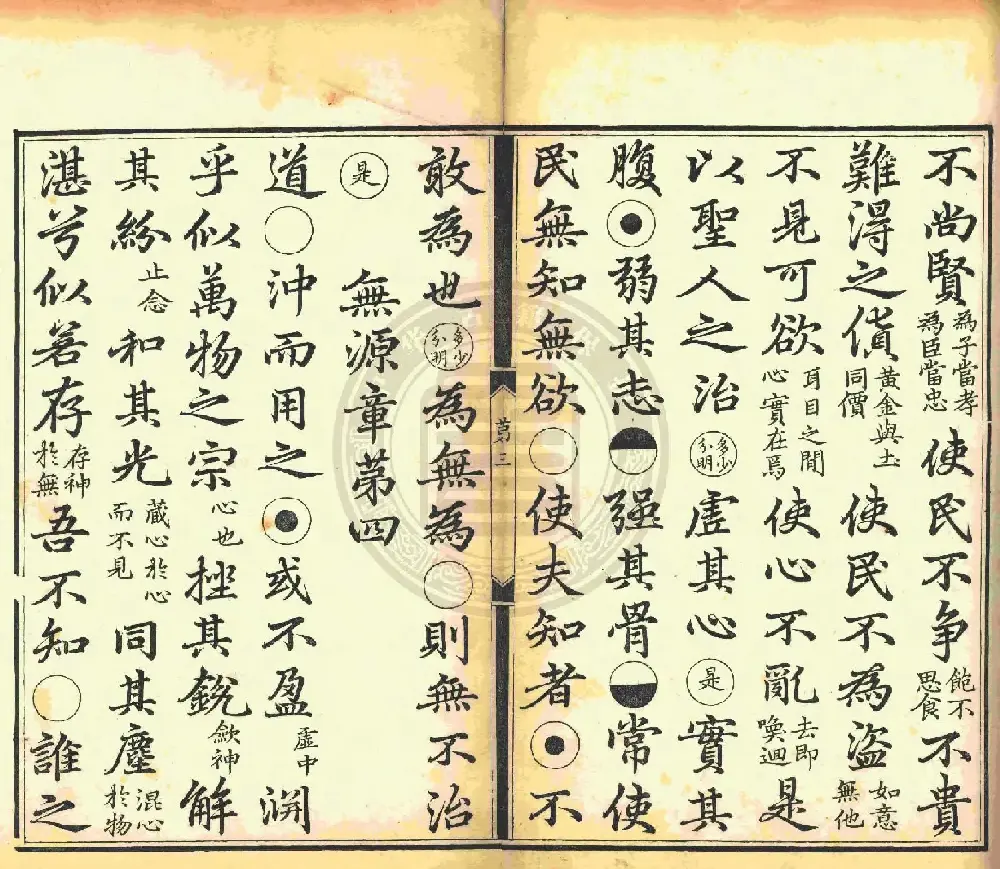 不尚賢為子當孝為臣當忠使民不争飽不思食不貴
難得之貨黃金與土同價使民不為盜如意無他
不見可欲耳目之間心實在焉使心不亂去即喚迴是
以聖人之治多少分明虛其心是實其
腹弱其志强其骨常使
民無知無欲使夫知者不
第三
敢為也多少分明為無為則無不治
是無源章第四
道沖而用之或不盈虛中淵
乎似萬物之宗心也挫其銳歛神解
其紛止念和其光藏心於心而不見同其塵混心於物
湛兮似若存存神於無吾不知誰之